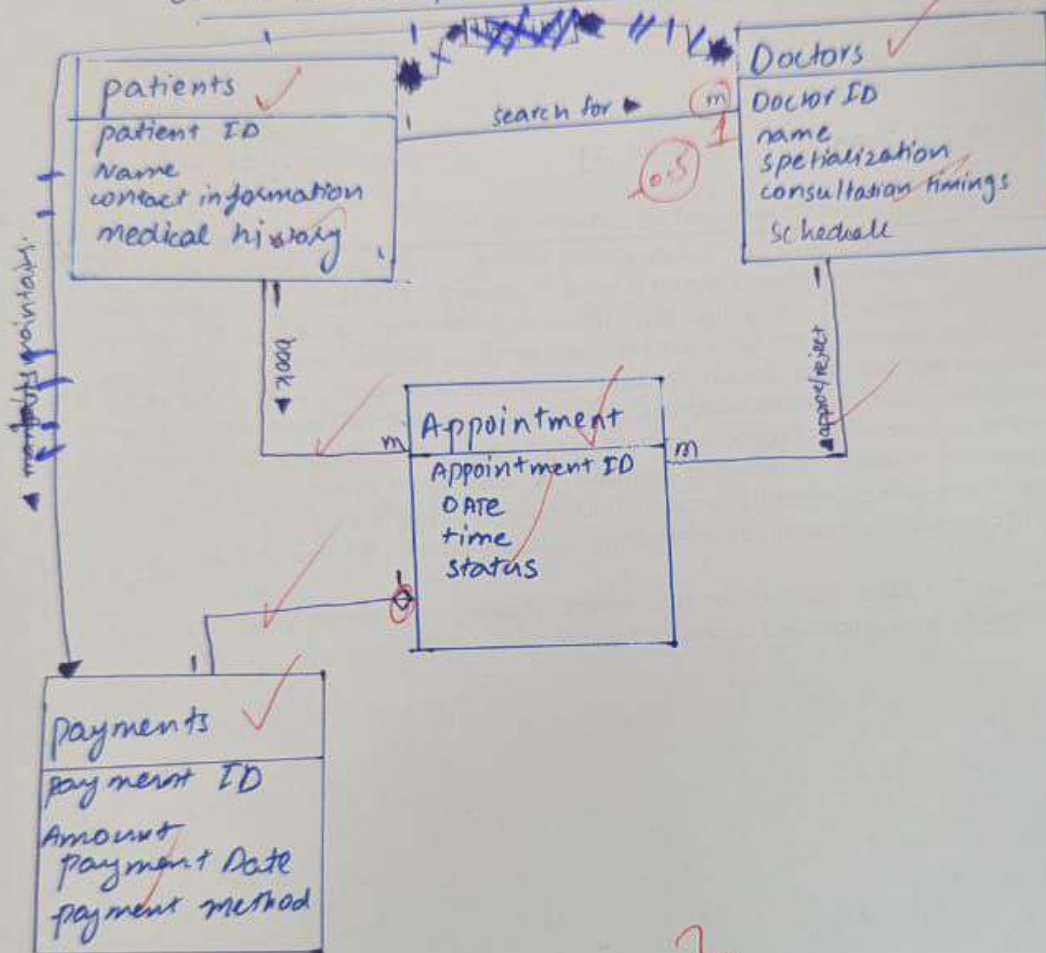 patients
patient ID
Name
contact information
medical history
search for
1
m
1
0.5
Doctors
Doctor ID
name
spetialization
consultation timings
schedule
maintains
1
book
m
Appointment
Appointment ID
DATE
time
status
m
1
approve/reject
1
1
payments
payment ID
Amount
payment Date
payment method